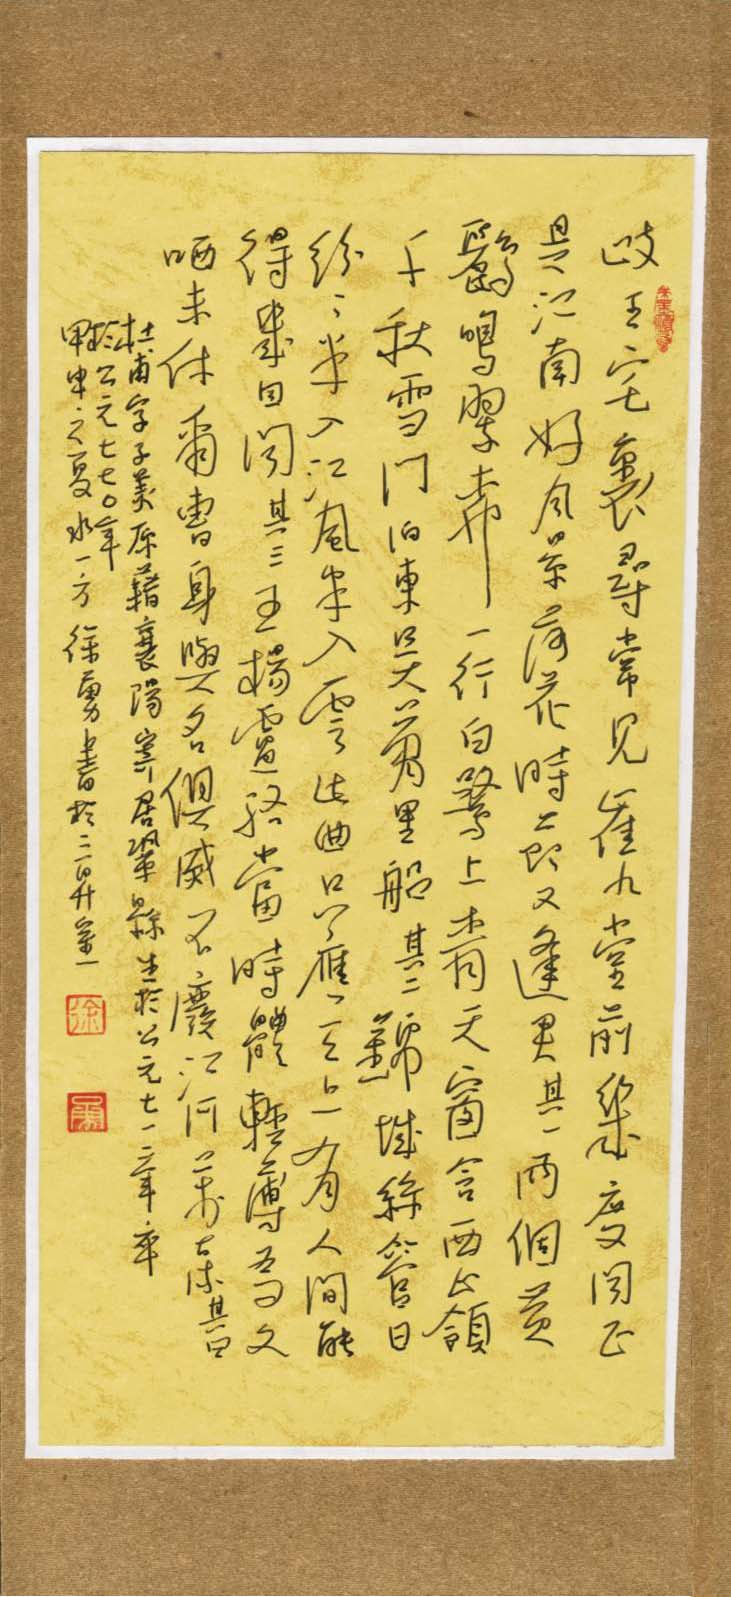 歧王宅裏尋常見崔九堂前幾度聞正
是江南好風景落花時節又逢君其一兩個黃
鸝鳴翠柳一行白鷺上青天窗含西嶺
千秋雪門泊東吳萬里船其二錦城絲管日
紛々半入江風半入雲此曲只應天上有人間能
得幾回聞其三王楊盧駱當時體輕薄為文
哂未休爾曹身與名俱滅不廢江河萬古流其四
杜甫字子美原藉襄陽寄居鞏縣生於公元七一二年卒
於公元七七〇年
甲申之夏水一方徐勇書於三昇室
徐
勇